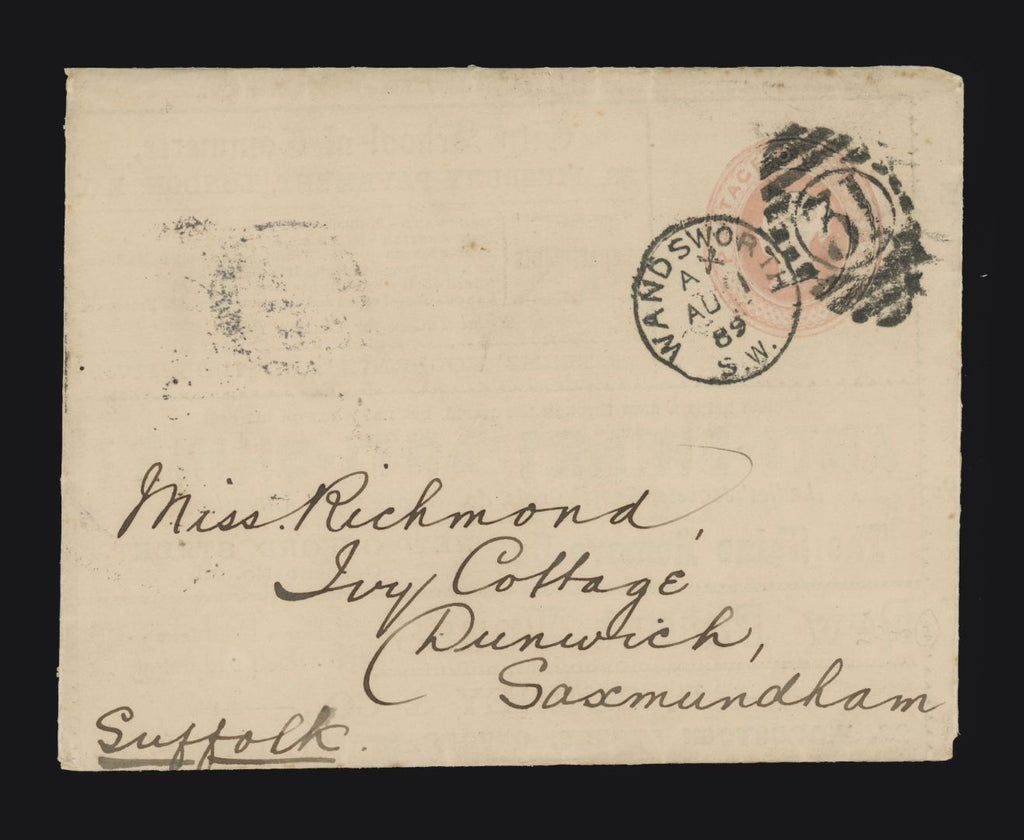 WANDSWORTH
X
A
AU 1
89
S.W.
Miss. Richmond,
Ivy Cottage
Dunwich,
Saxmundham
Suffolk.